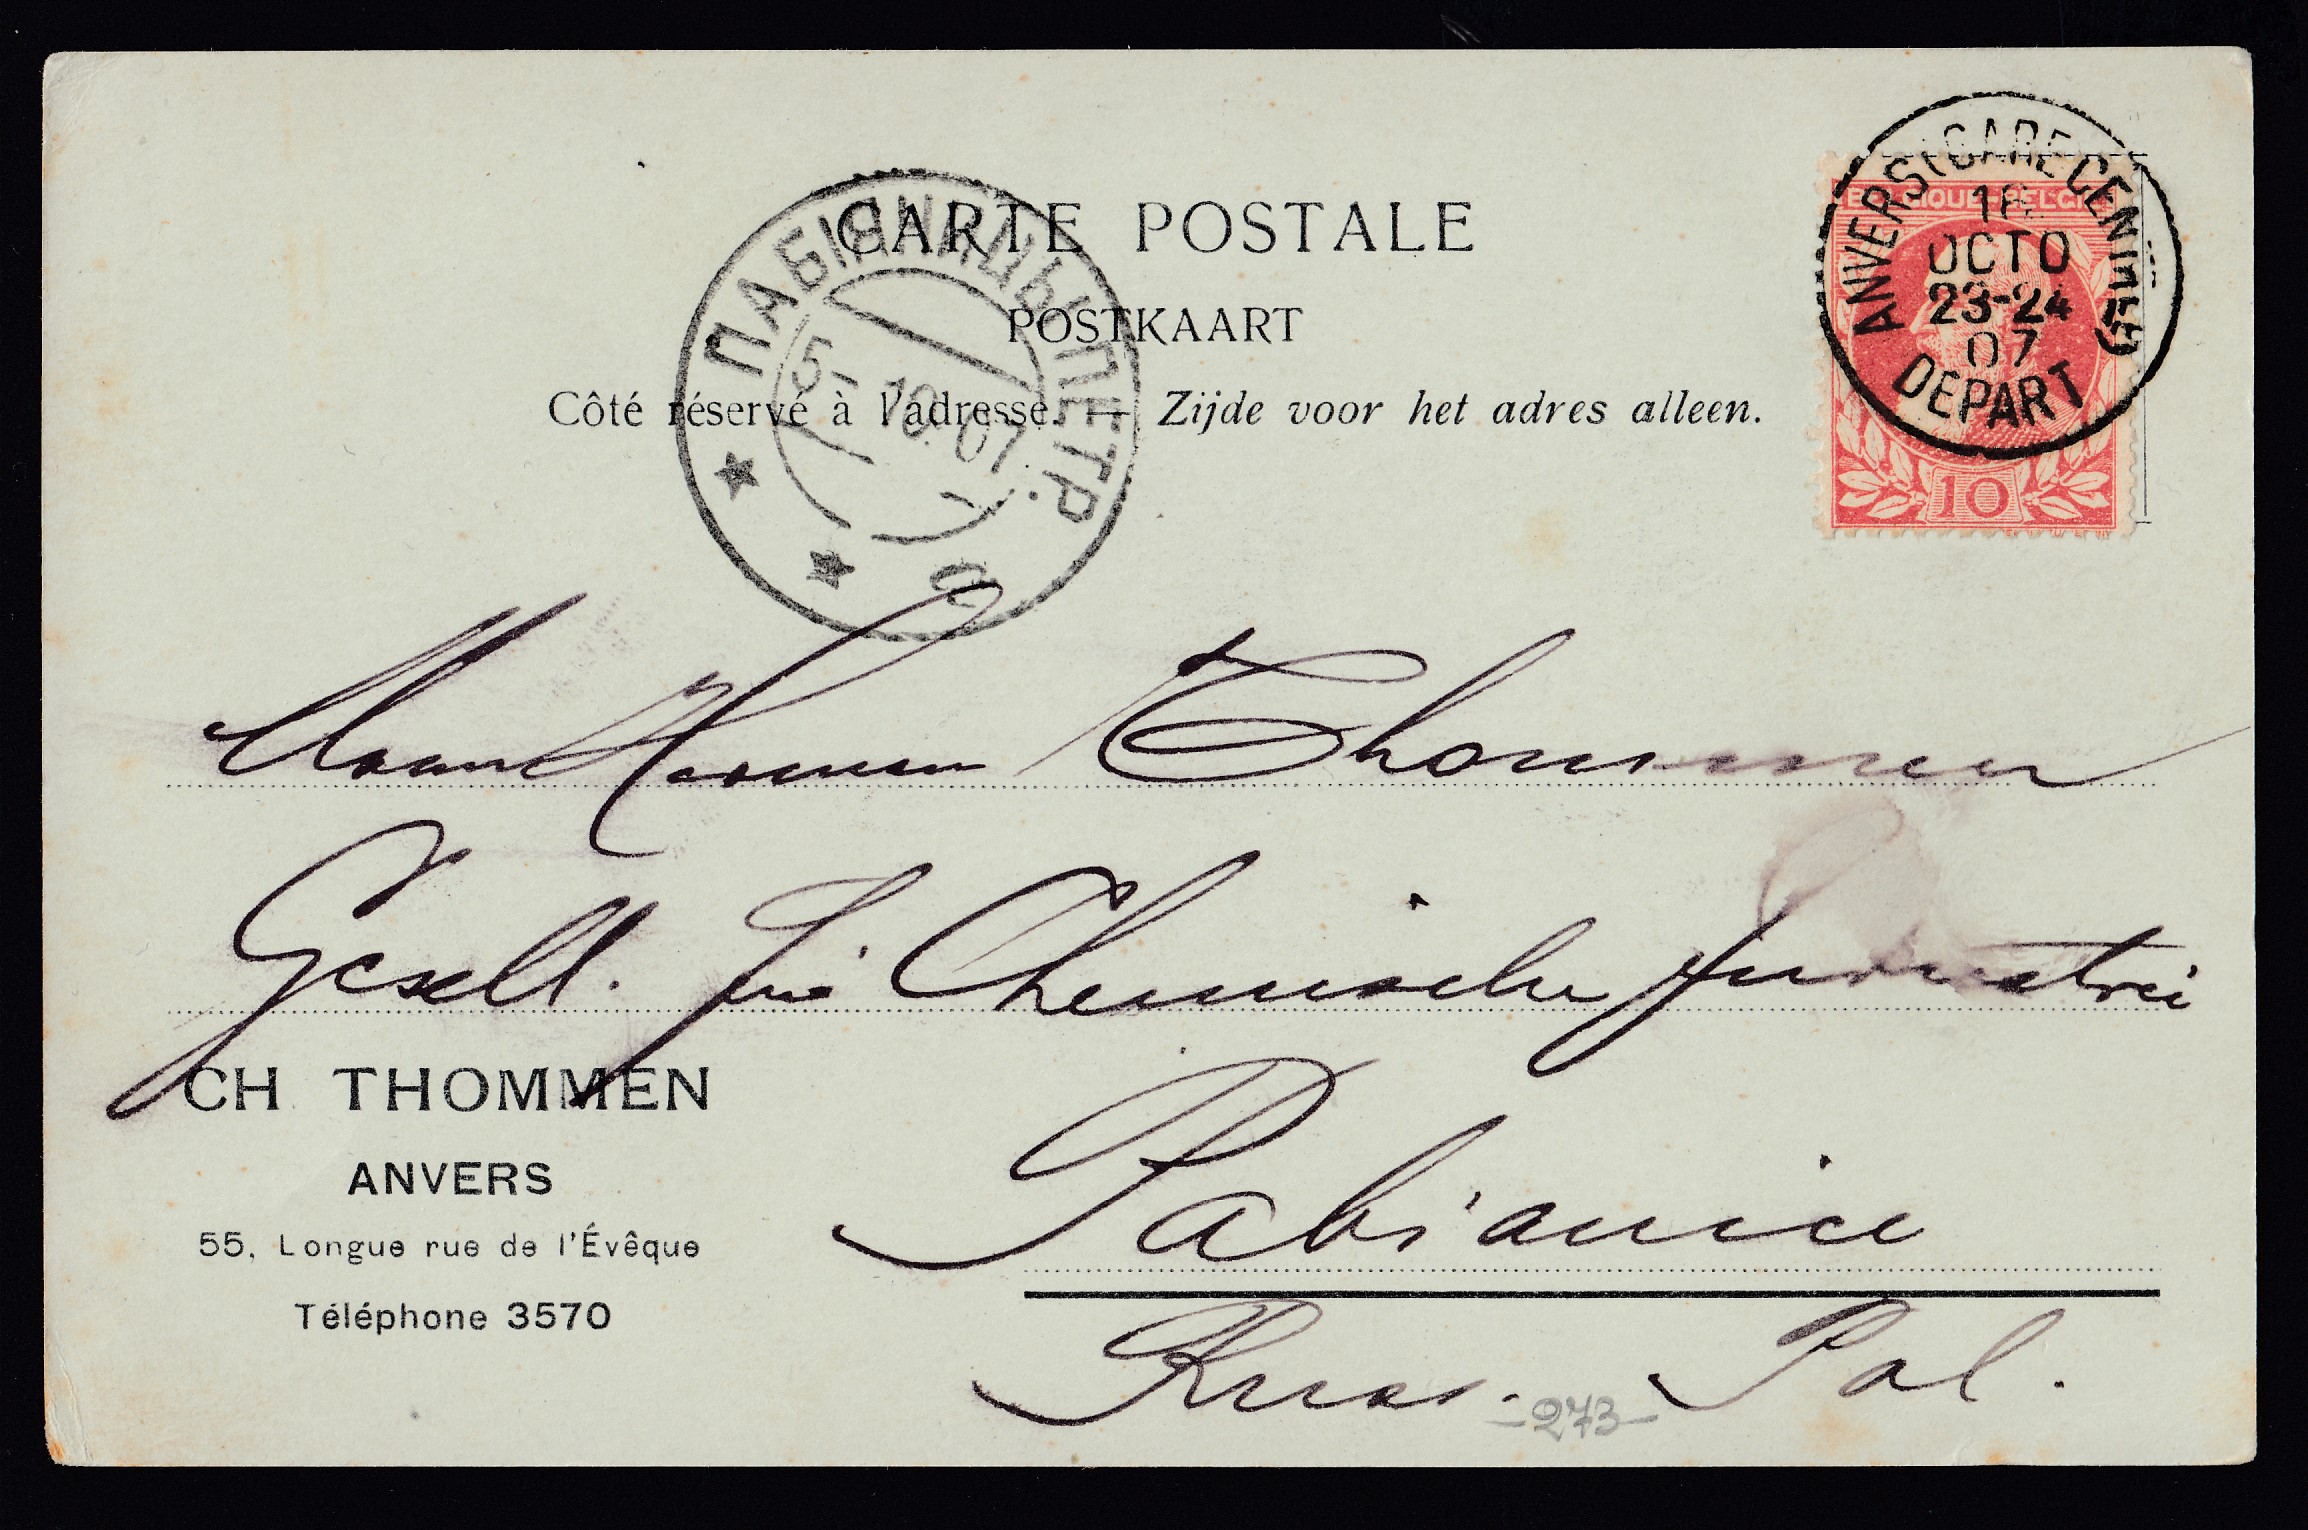 CARTE POSTALE
POSTKAART
Côté réservé à l'adresse. — Zijde voor het adres alleen.
ПАБІЯНИЦЫ ПЕТР.
5 10 07
a
BELGIQUE-BELGIË
ANVERS (GARE CENTRALE)
OCTO
23-24
07
DEPART
10
Herman Thommen
Gesell. für Chemische Industrie
Pabianice
Russ. Pol.
-273-
CH. THOMMEN
ANVERS
55, Longue rue de l'Évêque
Téléphone 3570